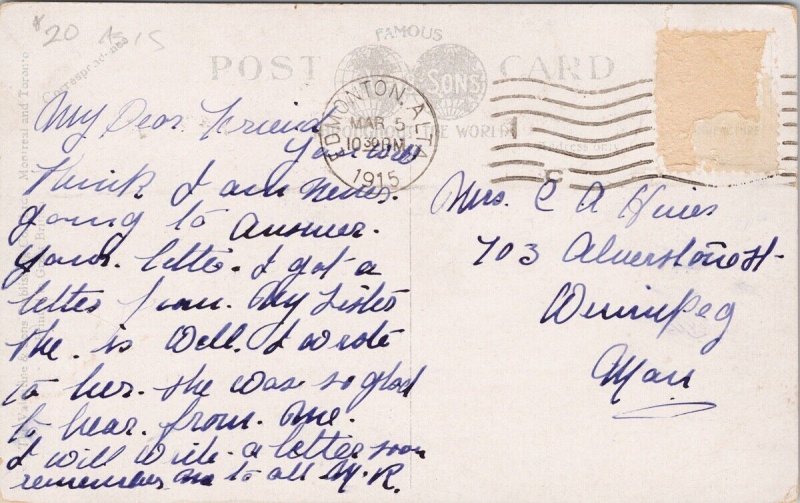 $20
FAMOUS
POST CARD
SONS
THROUGHOUT THE WORLD
Correspondence
Montreal and Toronto
EDMONTON, ALTA
MAR 5
10 30 PM
1915
My Dear Friend
You will
think I am never.
going to answer.
your. letter. I got a
letter from. My Sister
she. is well. I wrote
to her. she was so glad
to hear. from. me.
I will write. a letter soon
remember me to all M.R.
Mrs. C A Hines
703 Alverstone St.
Winnipeg
Man